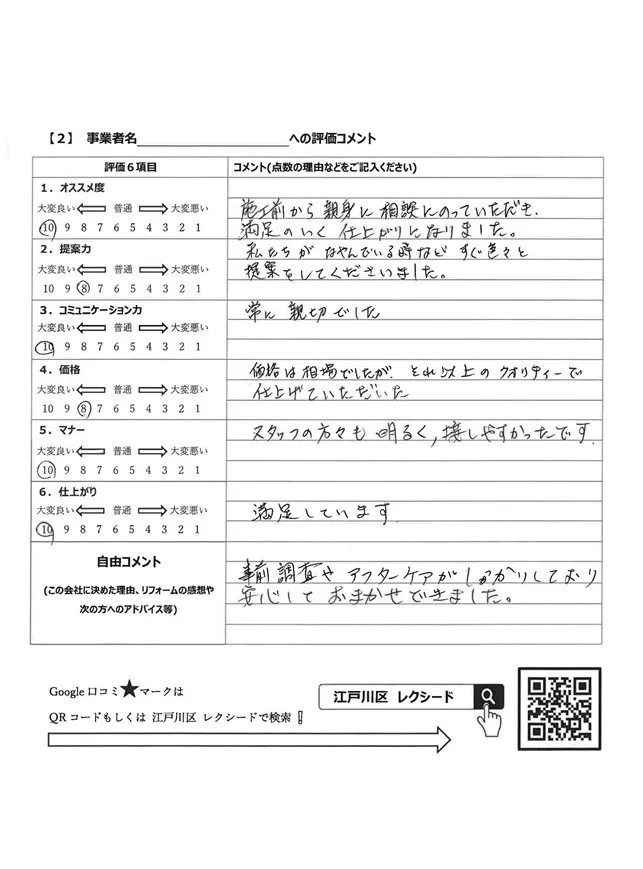 【2】 事業者名 への評価コメント
評価6項目 コメント(点数の理由などをご記入ください)
1．オススメ度
大変良い 普通 大変悪い
10 9 8 7 6 5 4 3 2 1
施工前から親身に相談にのっていただき、
満足のいく仕上がりになりました。
2．提案力
大変良い 普通 大変悪い
10 9 8 7 6 5 4 3 2 1
私たちがなやんでいる時など すぐ色々と
提案をしてくださいました。
3．コミュニケーション力
大変良い 普通 大変悪い
10 9 8 7 6 5 4 3 2 1
常に親切でした
4．価格
大変良い 普通 大変悪い
10 9 8 7 6 5 4 3 2 1
価格は相場でしたが、それ以上のクオリティーで
仕上げていただいた
5．マナー
大変良い 普通 大変悪い
10 9 8 7 6 5 4 3 2 1
スタッフの方々も明るく,接しやすかったです.
6．仕上がり
大変良い 普通 大変悪い
10 9 8 7 6 5 4 3 2 1
満足しています.
自由コメント
(この会社に決めた理由、リフォームの感想や
次の方へのアドバイス等)
事前調査やアフターケアがしっかりしており
安心しておまかせできました。
Google 口コミ★マークは
QRコードもしくは 江戸川区 レクシードで検索！
江戸川区 レクシード